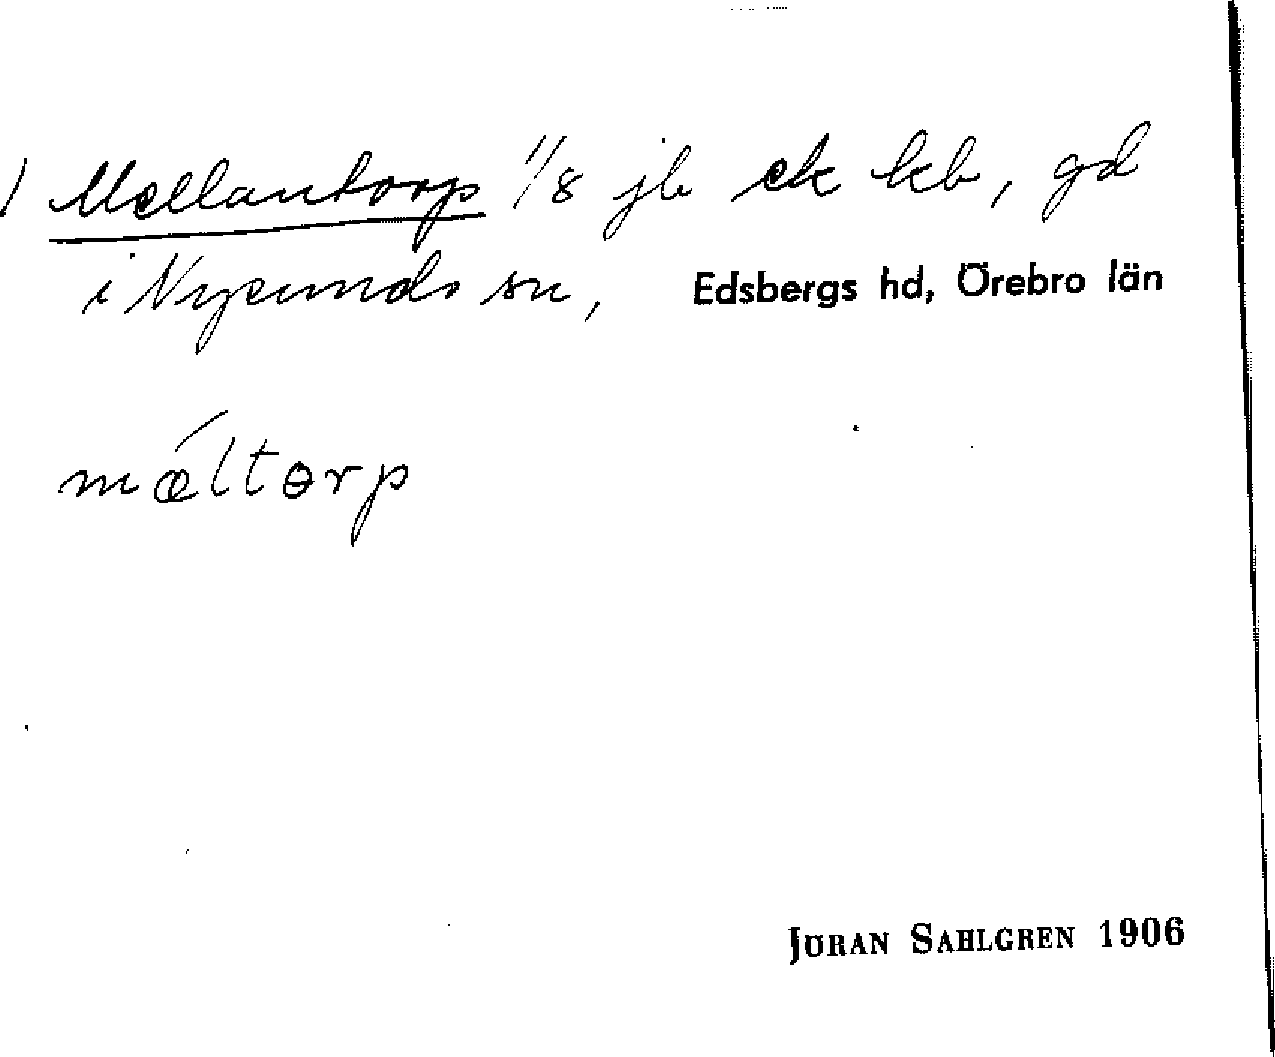 ) Mellantorp 1/8 jb ek kb, gd
i Nysunds sn, Edsbergs hd, Örebro län
mǽltɵrp
JÖRAN SAHLGREN 1906